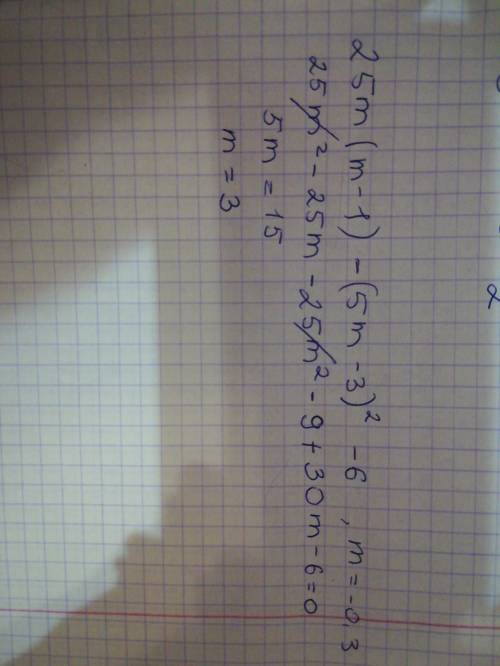 25m(m-1)-(5m-3)²-6, m=-0,3
25m²-25m-25m²-9+30m-6=0
5m=15
m=3